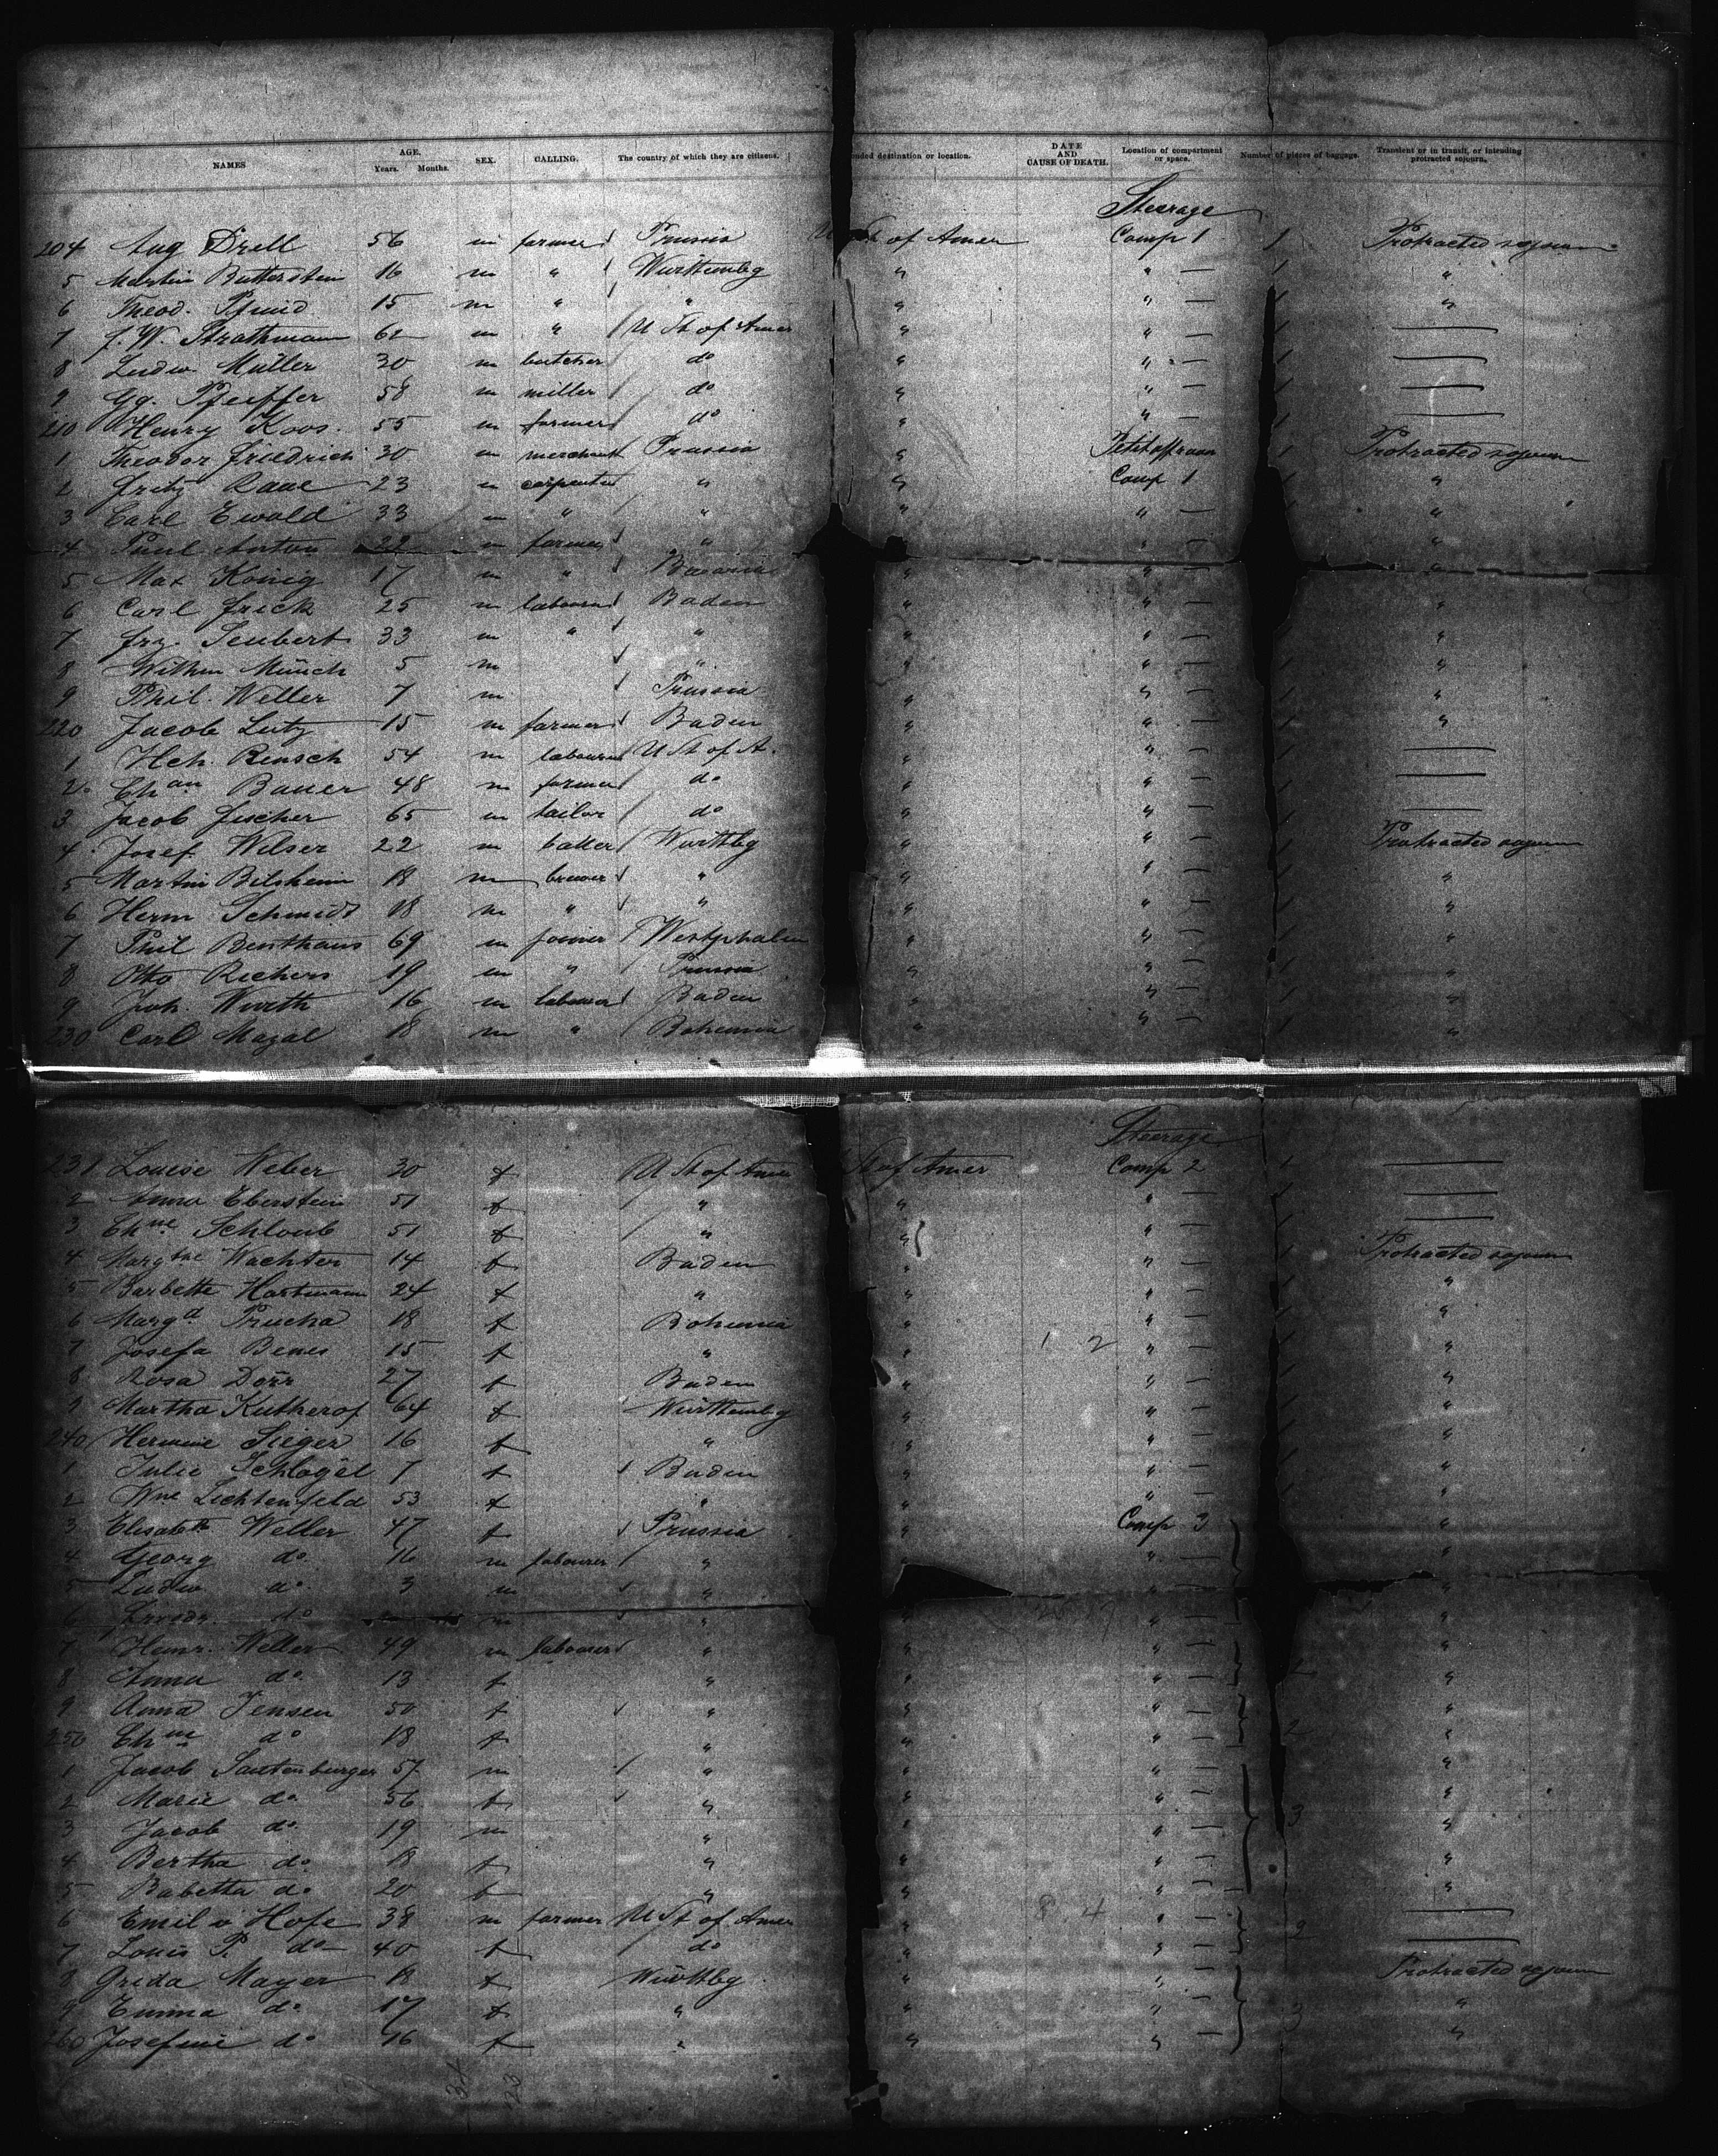 NAMES AGE. Years. Months. SEX. CALLING. The country of which they are citizens. nded destination or location. DATE AND CAUSE OF DEATH. Location of compartment or space. Number of pieces of baggage. Transient or in transit, or intending protracted sojourn.
Steerage
204 Aug Drell 56 m farmer Prussia St of Amer Comp 1 1 Protracted sojourn
5 Martin Butterstein 16 m " Württembg " " — 1 "
6 Theod. Pfund 15 m " " " " — 1 "
7 J. W. Strathmann 62 m " U St of Amer " " — 1 —
8 Ludw Müller 30 m butcher do " " — 1 —
9 Gg. Pfeiffer 58 m miller do " " — 1 —
210 Henry Koos. 55 m farmer do " " — 1 —
1 Theodor Friedrich 30 m merchant Prussia " 1 Protracted sojourn
2 Fritz Raae 23 m carpenter " " Comp 1 1 "
3 Carl Ewald 33 m " " " " — 1 "
4 Paul Anton 22 m farmer " " " — "
5 Max König 17 m " Bavaria " " — "
6 Carl Frick 25 m labourer Baden " " — "
7 Frz. Seubert 33 m " " " " — "
8 Wilhm Münch 5 m " " " — 1 "
9 Phil. Weller 7 m Prussia " " — 1 "
220 Jacob Lutz 15 m farmer Baden " " — 1 "
1 Hch. Rensch 54 m labourer U St of A. " " — 1 —
2 Chan Bauer 48 m farmer do " " — 1 —
3 Jacob Fischer 65 m tailor do " " — 1 —
4 Josef Welser 22 m baker Württbg " " — 1 Protracted sojourn
5 Martin Bilsheim 18 m brewer " " " — 1 "
6 Herm Schmidt 18 m " " " " — 1 "
7 Phil Benthaus 69 m joiner Westphalen " " — 1 "
8 Otto Richers 19 m " Prussia " " — 1 "
9 Joh. Wurth 16 m labourer Baden " " — 1 "
230 Carl Mazal 18 m " Bohemia " " — 1 "
Steerage
231 Louise Weber 30 f U St of Amer St of Amer Comp 2 1 —
2 Anna Eberstein 51 f " " " — 1 —
3 Chne Schloub 51 f " " " — 1 —
4 Margthe Wachter 14 f Baden " " — 1 Protracted sojourn
5 Barbette Hartmann 24 f " " " — 1 "
6 Margd Prucha 18 f Bohemia " " — 1 "
7 Josefa Benes 15 f " " 1 2 " — 1 "
8 Rosa Dörr 27 f Baden " " — 1 "
9 Martha Kutherof 64 f Württembg " " — 1 "
240 Hermine Sieger 16 f " " " — 1 "
1 Julie Schlogel 7 f Baden " " — 1 "
2 Wne Lichtenfeld 53 f " " " — 1 "
3 Elisabeth Weller 47 f Prussia " Comp 3 "
4 Georg do. 16 m labourer " " " — "
5 Ludw do. 3 m " " " — "
6 do m " " " — "
7 Heinr. Weller 49 m labourer " " " — "
8 Anna do. 13 f " " " — 2 "
9 Anna Jensen 50 f " " " — "
250 do 18 f " " " — 2 "
1 Jacob Sautenburger 57 m " " " — "
2 Marie do. 56 f " " " — "
3 Jacob do. 19 m " " " — 3 "
4 Bertha do. 18 f " " " — "
5 Babetta do. 20 f " " " — "
6 Emil v Hofe 38 m farmer U St of Amer " 8 4 " — —
7 Louis P. do 40 f do " " — 2 —
8 Mayer 18 f Württbg " " — Protracted sojourn
9 Emma do 17 f " " " — 3 "
260 Josefine do 16 f " " " — "
34
23